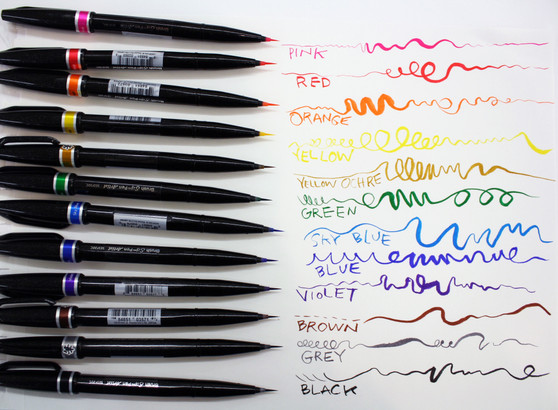 PINK
RED
ORANGE
YELLOW
YELLOW OCHRE
GREEN
SKY BLUE
BLUE
VIOLET
BROWN
GREY
BLACK